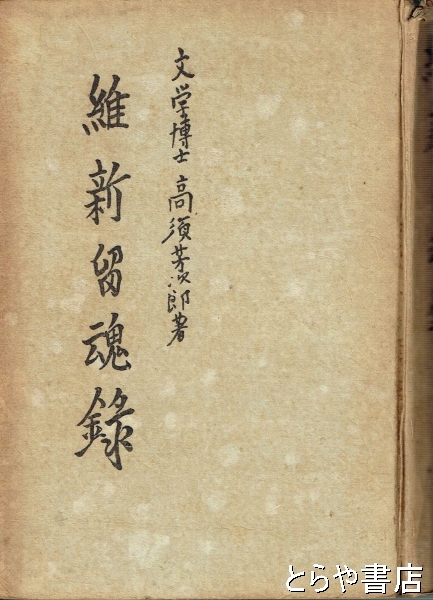 文学博士 高須芳次郎著
維新留魂録
とらや書店